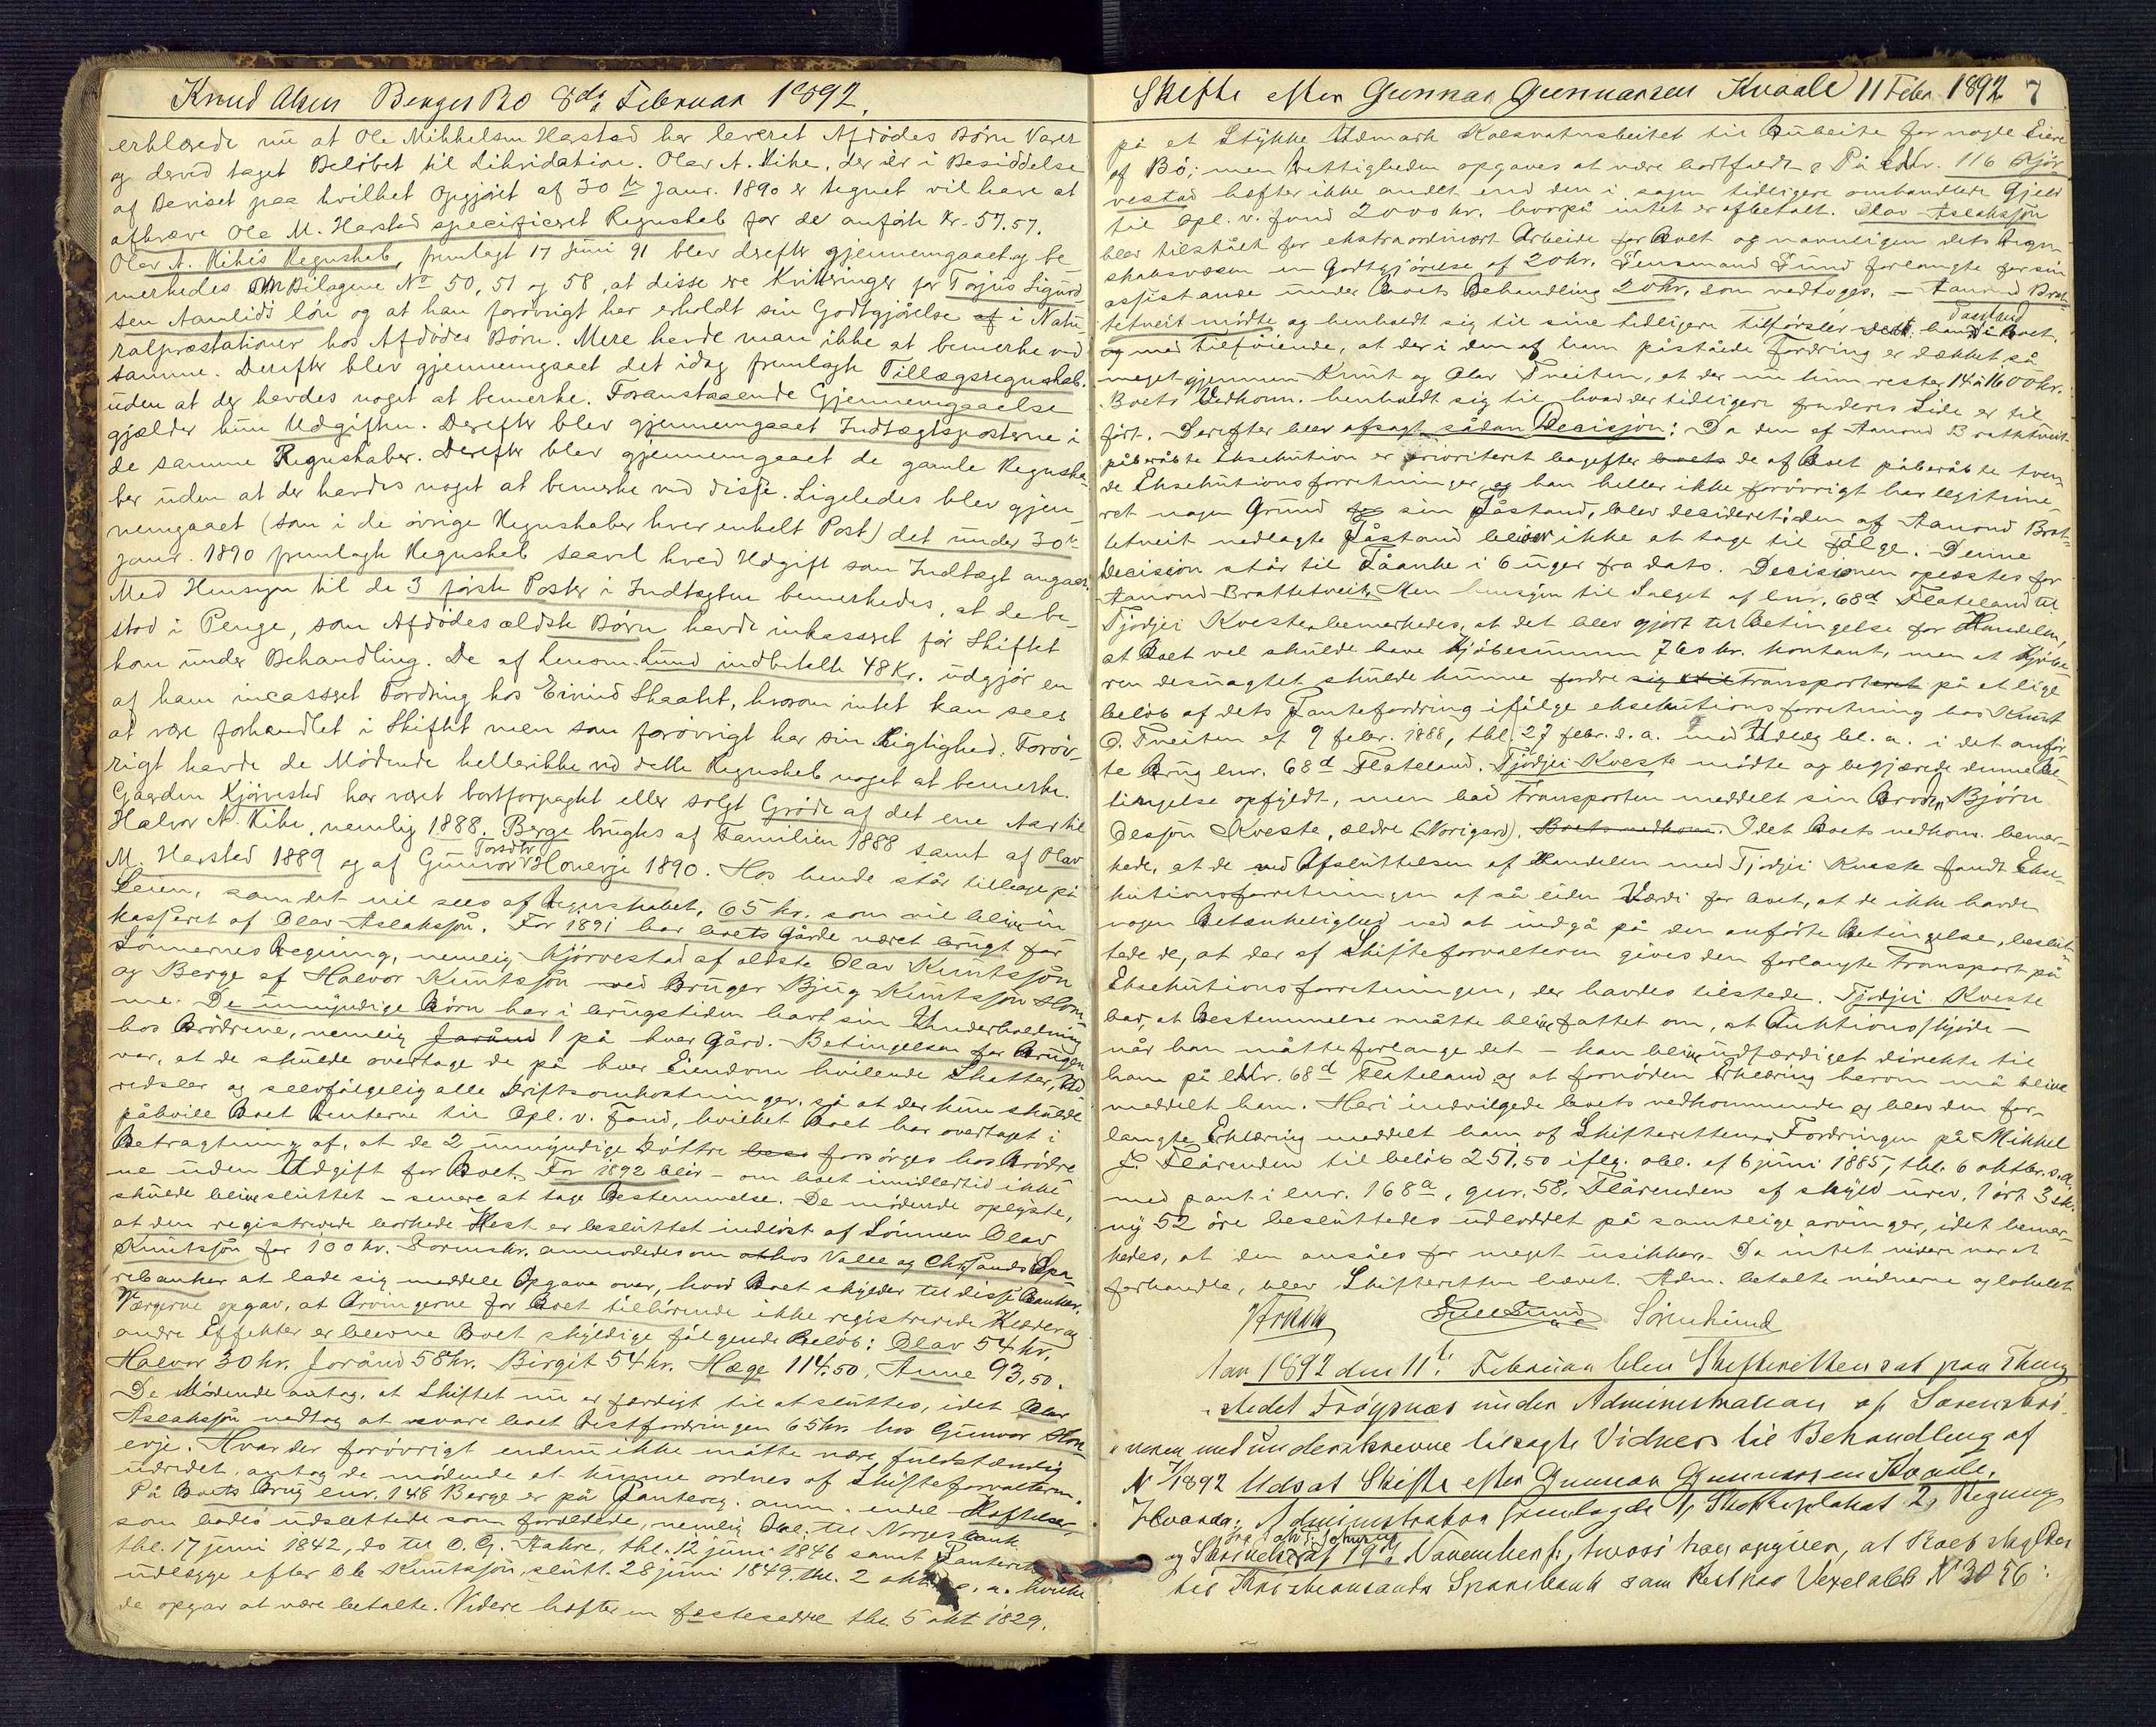 Knud Olsen Berges Bo 8de Februar 1892.
erklærede nu at Ole Mikkelsen Harstad har leveret Afdødes Børn Varer
og derved taget Beløbet til Likvidation. Olav A. Kike, der er i Besiddelse
af Beviset paa hvilket Opgjøret af 30te Janr. 1890 er tegnet vil have at
afkræve Ole M. Harstad specificeret Regnskab for de anførte Kr. 57.57.
Olav A. Kike's Regnskab, fremlagt 17 Juni 91 blev drefter gjennemgaaet og be
merkedes Bilagene No 50, 51 og 58, at disse ere Kvitteringer for Torjus Sigurd
sen Aamlids løn og at han forøvrigt har erholdt sin Godtgjørelse af i Natu
ralpræstationer hos Afdødes Børn. Mere havde man ikke at bemerke ved
samme. Derefter blev gjennemgaaet det idag fremlagte Tillægsregnskab.
uden at der havdes noget at bemerke. Foranstaaende Gjennemgaaelse
gjælder kun Udgiften. Derefter blev gjennemgaaet Indtægtsposterne i
de samme Regnskaber. Derefter blev gjennemgaaet de gamle Regnska-
ber uden at der havdes noget at bemerke ved disse. Ligeledes blev gjen-
nemgaaet (som i de øvrige Regnskaber hver enkelt Post) det under 30te
Janr. 1890 fremlagte Regnskab saavel hvad Udgift som Indtægt angaar.
Med Hensyn til de 3 første Poster i Indtægten bemerkedes, at de be-
stod i Penge, som Afdødes ældste Børn havde inkasseret før Skiftet
kom under Behandling. De af Lensm. Lund indbetalte 48 Kr. udgjør en
af ham incasseret Fordring hos Eivind Skaaht, hvorom intet kan sees
at være forhandlet i Skiftet men som forøvrigt har sin Rigtighed. Forøv-
rigt havde de Mødende hellerikke ved dette Regnskab noget at bemerke.
Gaarden Kjørvestad har været bortforpagtet eller solgt Grøde af det ene Aar til
Halvor N. Kike, nemlig 1888. Berge brugtes af Familien 1888 samt af Olav
M. Harstad 1889 og af Gunvor Torsdtr Honevje 1890. Hos hende står tilbage på
Leien, som det vil sees af Regnskabet, 65 kr. som vil blive in
kasseret af Olav Aslaksøn. For 1891 har boets gårde været brugt for
Sønnernes Regning, nemlig Kjørvestad af ældste Olav Knutssøn
og Berge af Halvor Knutssøn ved Bruger Bjug Knutssøn Hom-
me. De umyndige Børn har i brugstiden havt sin Underholdning
hos Brødrene, nemlig Joraand 1 på hver Gård. Betingelsen for Brugen
var, at de skulde overtage de på hver Eiendom hvilende Skatter, Ud
redsler og selvfølgelig alle Driftsomkostninger, så at der kun skulde
påhvile Boet Renterne til Opl. v. Fond, hvilket Boet har overtaget i
Betragtning af, at de 2 umyndige Døttre forsørges hos Brødre
ne uden Udgift for Boet. For 1892 blir - om boet imidlertid ikke
skulde blive sluttet - senere at tage Bestemmelse. De mødende oplyste,
at den registrerede borkede Hest er besluttet indløst af Sønnen Olav
Knutssøn for 100 kr. Formskr. anmodedes om at hos Valle og Chr.sands Spa-
rebanker at lade sig meddele Opgave over, hvad Boet skylder til disse Banker.
Værgerne opgav, at Arvingerne for Boet tilhørende ikke registrerede Klæder og
andre Effekter er blevne Boet skyldige følgende Beløb: Olav 54 kr,
Halvor 30 kr. Joraand 58 kr. Birgit 54 kr. Hæge 114.50, Anne 93,50.
De Mødende antog, at Skiftet nu er færdigt til at sluttes, idet Olav
Aslaksøn vedtog at svare boet Restfordringen 65 kr. hos Gunvor Hon-
evje. Hvad der forøvrigt endnu ikke måtte være fuldstændig
udredet, antog de mødende at kunne ordnes af Skifteforvalteren.
På Boets Brug lnr. 148 Berge er på Panterg. anm. endel Heftelser,
som bades udslettede som forældede, nemlig Obl. til Norges Bank
thl. 17 juni 1842, do til O. G. Aakre, thl. 12 juni 1846 samt Panteret
udlægge efter Ole Knutssøn, slutt. 28 juni 1849. thl. 2 okt s. a. hvilke
de opgav at være betalte. Videre hæfter en festeseddel thl. 5 okt 1829.
Skifte efter Gunnar Gunnarsen Kvaale 11 Febr. 1892 7
på et Stykke Udmark Kolsvatnsbeitet til Bubeite for nogle Eiere
af Bø; men Rettigheden opgaves at være bortfaldt. På Lnr. 116 Kjør
vestad hæfter ikke andet end den i sagen tidligere omhandlede Gjeld
til Opl. v. fond 2000 kr. hvorpå intet er afbetalt. Olav Aslaksøn
blev tilstået for ekstraordinært Arbeide for Boet og navnligen dets Regn-
skabsvæsen en Godtgjørelse af 20 kr. Lensmand Lund forlangte for sin
assistanse under Boets Behandling 20 kr, som vedtoges. - Aanond Brat-
tetveit mødte og henholdt sig til sine tidligere tilførsler Påstand i Boet.
og med Tilføiende, at der i den af ham påståede Fordring er dækket så
meget gjennem Knut og Olav Tveiten, at der nu kun rester 14 à 1600 kr.
Boets Vedkomm. henholdt sig til hvad der tidligere fra deres Side er til
ført. Derefter blev afsagt sådan Decisjon: Da den af Aanond Brattetveit
påberåbte Eksekution er prioriteret bagefter boets de af Boet påberåbte tven
de Eksekutionsforretninger, og han heller ikke forøvrigt har legitime
ret nogen Grund for sin Påstand, blev desideret: den af Aanond Brat-
tetveit nedlagte Påstand bliver ikke at tage til følge. Denne
Decision står til Påanke i 6 uger fra dato. Decisionen oplæstes for
Aanond Brattetveit. Men hensyn til Salget af lnr. 68d Flateland til
Tjodgei Kveste bemerkedes, at det blev gjort til Betingelse for Handelen,
at Boet vel skulde have Kjøbesummen 760 kr. kontant, men at Kjøbe
ren desuagtet skulde kunne fordre sig transport på et lige
beløb af dets Pantefordring ifølge eksekutionsforretning hos Knut
O. Tveiten af 9 febr. 1888, thl. 27 febr. s. a. med Udlæg bl. a. i det anfør
te Brug lnr. 68d Flateland. Tjodgei Kveste mødte og begjærede denne Be-
tingelse opfyldt, men bad Transporten meddelt sin Broder Bjørn
Olssøn Kveste, ældre (Norigard). Boets vedkom. Idet Boets vedkom. bemær-
kede, at de ved Afsluttelsen af Handelen med Tjodgei Kveste fandt Ekse-
kutionsforretningen af så liden Værdi for boet, at de ikke havde
nogen Betænkelighed ved at indgå på den anførte Betingelse, beslut-
tede de, at der af Skifteforvalteren gives den forlangte Transport på
Eksekutionsforretningen, der havdes tilstede. Tjodgei Kveste
bad, at Bestemmelse måtte blive fattet om, at Auktionsskjøde -
når han måtte forlange det - kan blive udfærdiget direkte til
ham på lnr. 68d Flateland og at fornøden Erklæring herom må blive
meddelt ham. Heri indvilgede boets vedkommende og blev den for-
langte Erklæring meddelt ham af Skifteretten. Fordringen på Mikkel
J. Flårenden til beløb 251,50 iflg. obl. af 6 juni 1885, thl. 6 oktbr. s. a.
med pant i lnr. 168a, gnr. 58. Flårenden af skyld urev. 1 ort 3 sk.
ny 52 øre besluttedes udloddet på samtlige arvinger, idet bemær-
kedes, at den ansåes for meget usikker. Da intet videre var at
forhandle, blev Skifteretten hævet. Adm. betalte vidnerne og lokalet
Aar 1892 den 11te Februar blev Skifteretten sat paa Thing
stedet Frøysnæs under Administration af Sorenskri-
veren med underskrevne tilsagte Vidner til Behandling af
N 7/1892 Udsat Skifte efter Gunnar Gunnarsen Kvaale.
Hvorda: Administrator fremlagde 1, Skiftesplakat 2, Regning
og Skrivelse af 19de November f., hvori han opgiver, at Boet skylder
til Kristiansands Sparebank som Rest paa Vexelobl. N 3056: